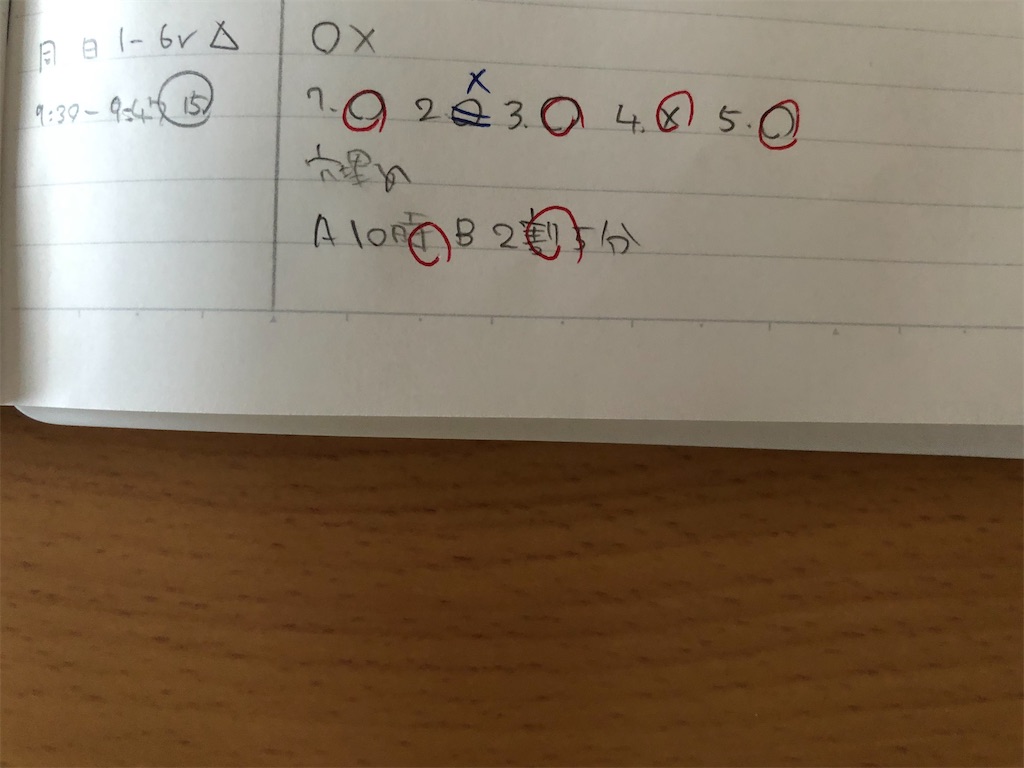 同日 1-6r △
9:30-9:45 15
○×
1. ○ 2. × 3. ○ 4. × 5. ○
穴理め
A 10 B 2割5分